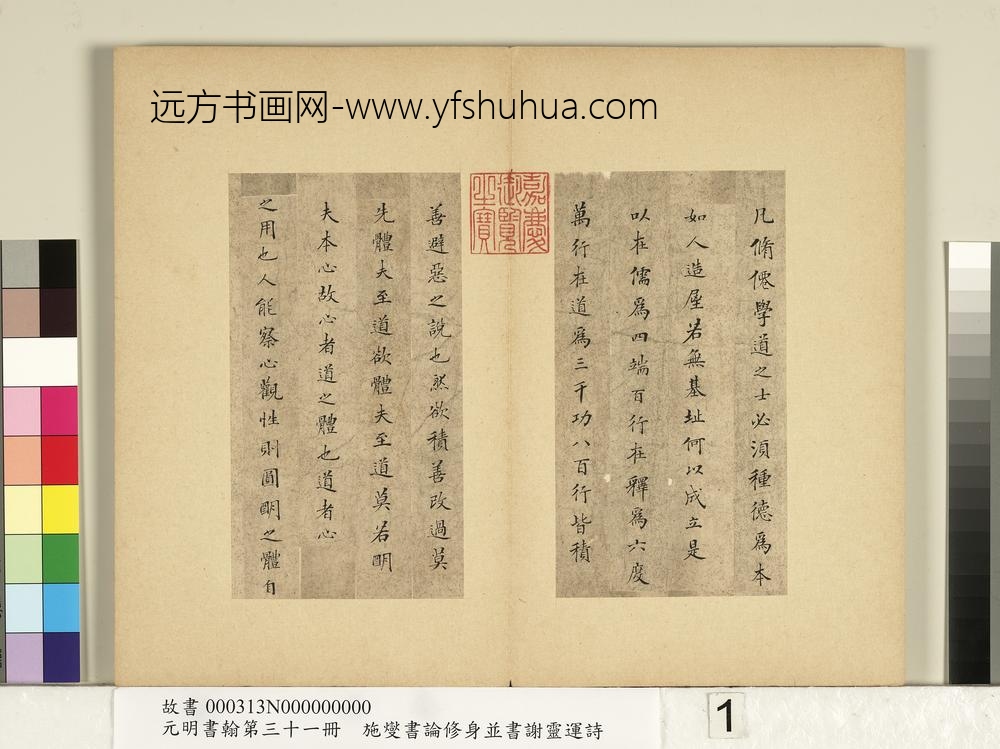 远方书画网-www.yfshuhua.com
嘉慶
御覽
之寶
凡脩僊學道之士必須種德爲本
如人造屋若無基址何以成立是
以在儒爲四端百行在釋爲六度
萬行在道爲三千功八百行皆積
善避惡之說也然欲積善改過莫
先體夫至道欲體夫至道莫若明
夫本心故心者道之體也道者心
之用也人能察心觀性則圓明之體自
故書 000313N000000000
元明書翰第三十一冊　施燮書論修身並書謝靈運詩
1